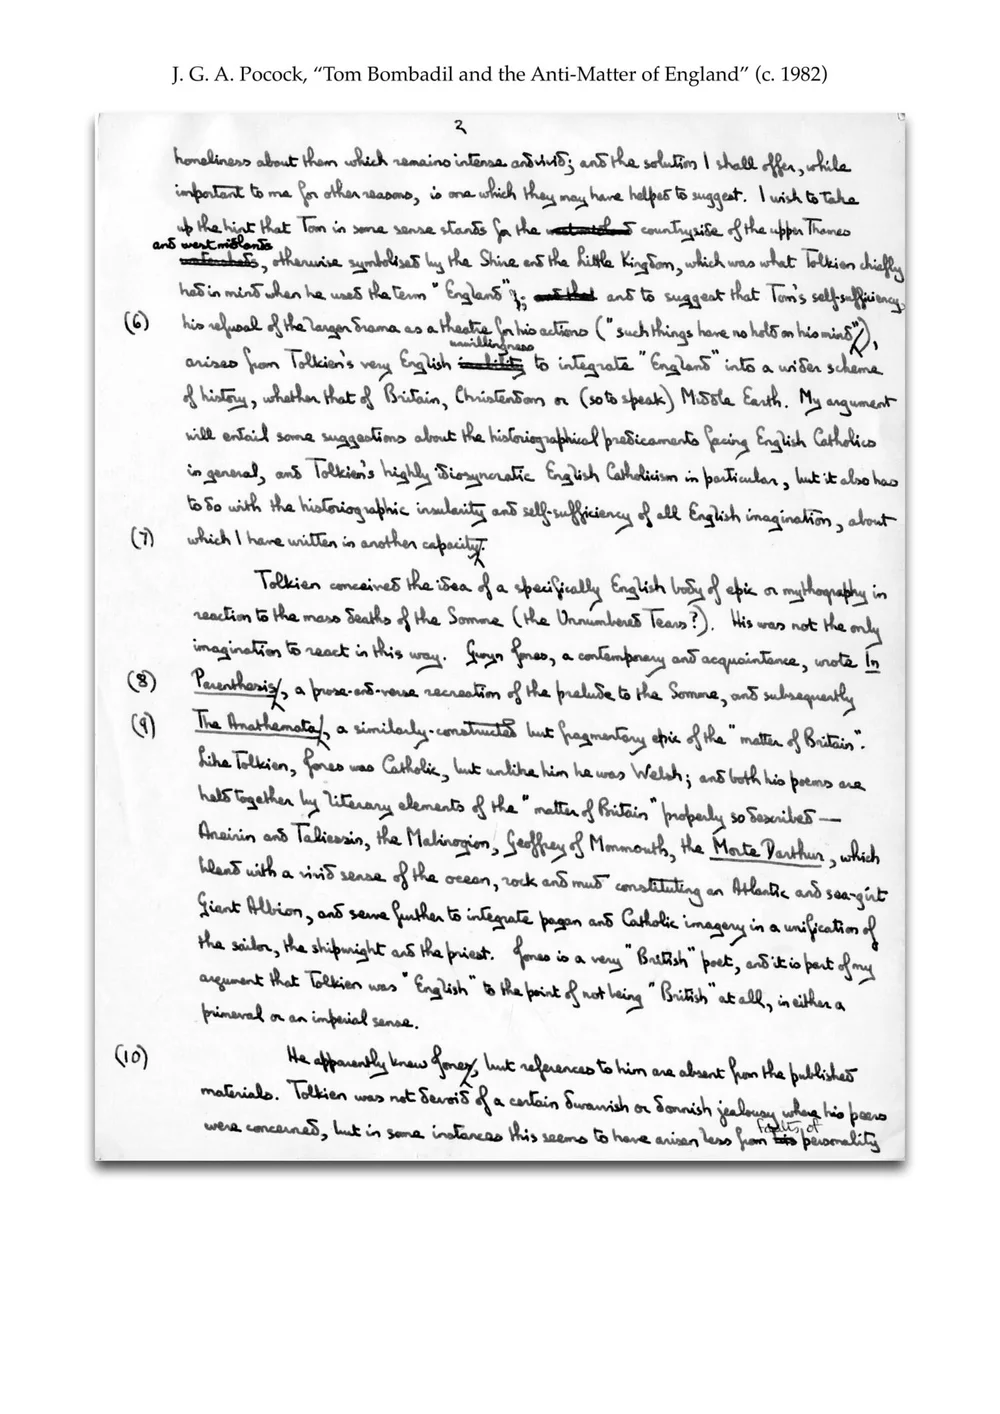 J. G. A. Pocock, “Tom Bombadil and the Anti-Matter of England” (c. 1982)
2
homeliness about them which remains intense and vivid; and the solution I shall offer, while
important to me for other reasons, is one which they may have helped to suggest. I wish to take
up the hint that Tom in some sense stands for the countryside of the upper Thames
and west midlands
watersheds, otherwise symbolised by the Shire and the Little Kingdom, which was what Tolkien chiefly
had in mind when he used the term "England"; and that and to suggest that Tom's self-sufficiency,
(6) his refusal of the larger drama as a theatre for his actions ("such things have no hold on his mind"),
unwillingness
arises from Tolkien's very English inability to integrate "England" into a wider scheme
of history, whether that of Britain, Christendom or (so to speak) Middle Earth. My argument
will entail some suggestions about the historiographical predicaments facing English Catholics
in general, and Tolkien's highly idiosyncratic English Catholicism in particular, but it also has
to do with the historiographic insularity and self-sufficiency of all English imagination, about
(7) which I have written in another capacity.
Tolkien conceived the idea of a specifically English body of epic or mythography in
reaction to the mass deaths of the Somme (the Unnumbered Tears?). His was not the only
imagination to react in this way. Gwyn Jones, a contemporary and acquaintance, wrote In
(8) Parenthesis, a prose-and-verse recreation of the prelude to the Somme, and subsequently
(9) The Anathemata, a similarly-constructed but fragmentary epic of the "matter of Britain".
Like Tolkien, Jones was Catholic, but unlike him he was Welsh; and both his poems are
held together by literary elements of the "matter of Britain" properly so described —
Aneirin and Taliessin, the Mabinogion, Geoffrey of Monmouth, the Morte Darthur, which
blend with a vivid sense of the ocean, rock and mud constituting an Atlantic and sea-girt
Giant Albion, and serve further to integrate pagan and Catholic imagery in a unification of
the sailor, the shipwright and the priest. Jones is a very "British" poet, and it is part of my
argument that Tolkien was "English" to the point of not being "British" at all, in either a
primeval or an imperial sense.
(10) He apparently knew Jones, but references to him are absent from the published
materials. Tolkien was not devoid of a certain swannish or donnish jealousy where his peers
faults of
were concerned, but in some instances this seems to have arisen less from his personality